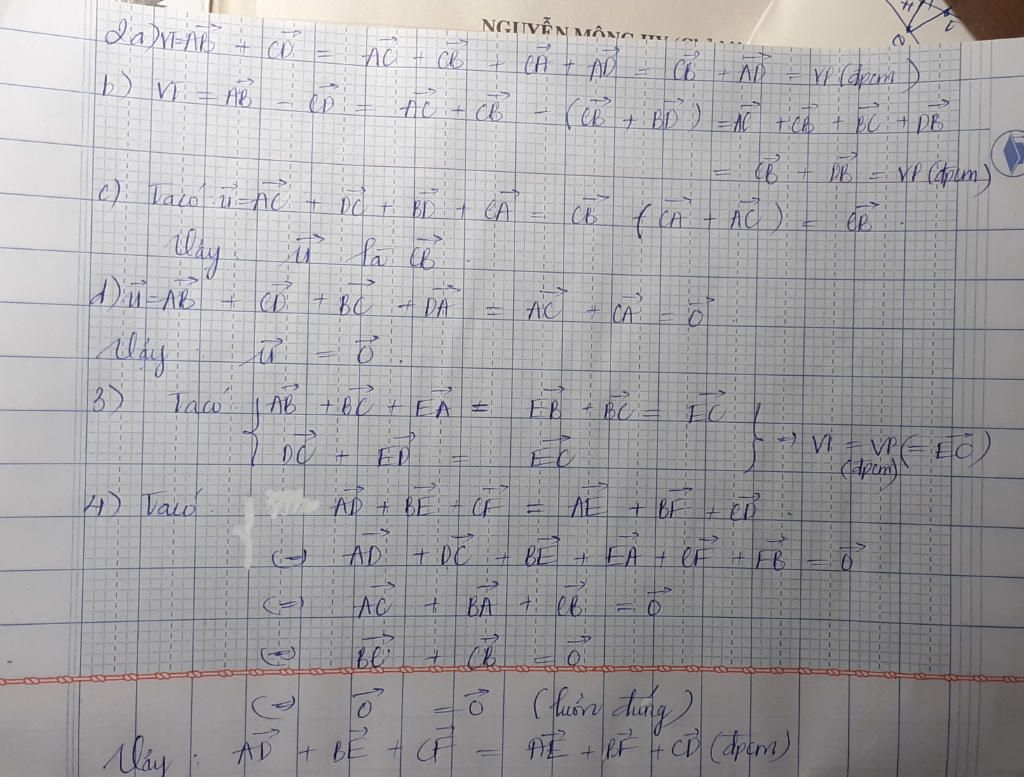 NGUYỄN MỘNG
2a) VT = AB→ + CD→ = AC→ + CB→ + CA→ + AD→ = CB→ + AD→ = VP (đpcm)
b) VT = AB→ - CD→ = AC→ + CB→ - (CB→ + BD→) = AC→ + CB→ + BC→ + DB→
= CB→ + DB→ = VP (đpcm)
c) Ta có: u→ = AC→ + DC→ + BD→ + CA→ = CB→ (CA→ + AC→) = CB→.
Vậy: u→ là CB→.
d) u→ = AB→ + CD→ + BC→ + DA→ = AC→ + CA→ = 0→.
Vậy: u→ = 0→.
3) Ta có: { AB→ + BC→ + EA→ = EB→ + BC→ = EC→
DC→ + ED→ = EC→ } => VT = VP (= EC→)
(đpcm)
4) Ta có: AD→ + BE→ + CF→ = AE→ + BF→ + CD→.
(=) AD→ + DC→ + BE→ + EA→ + CF→ + FB→ = 0→
(=) AC→ + BA→ + CB→ = 0→
(=) BC→ + CB→ = 0→
(=) 0→ = 0→ (luôn đúng)
Vậy: AD→ + BE→ + CF→ = AE→ + BF→ + CD→ (đpcm)